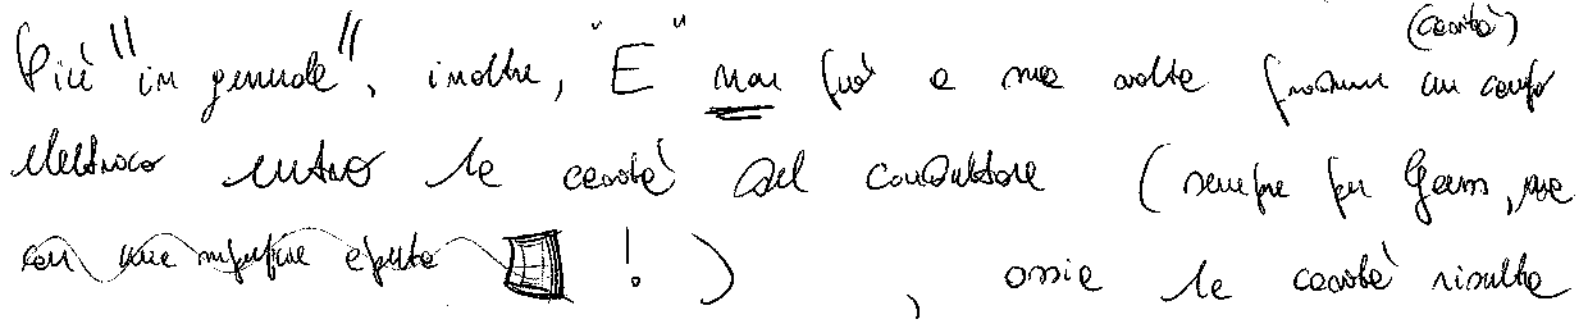 (cavità)
Più "in generale", inoltre, "E" non può a sua volta produrre un campo
elettrico entro la cavità del conduttore (sempre per Gauss, ma
con una superficie aperta ! ) , ossia la cavità risulta